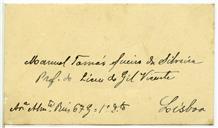 Manuel Tomás Queiroz da Silveira
Prof. do Liceu de Gil Vicente
Av. Alm. Reis 67 1º
Lisboa